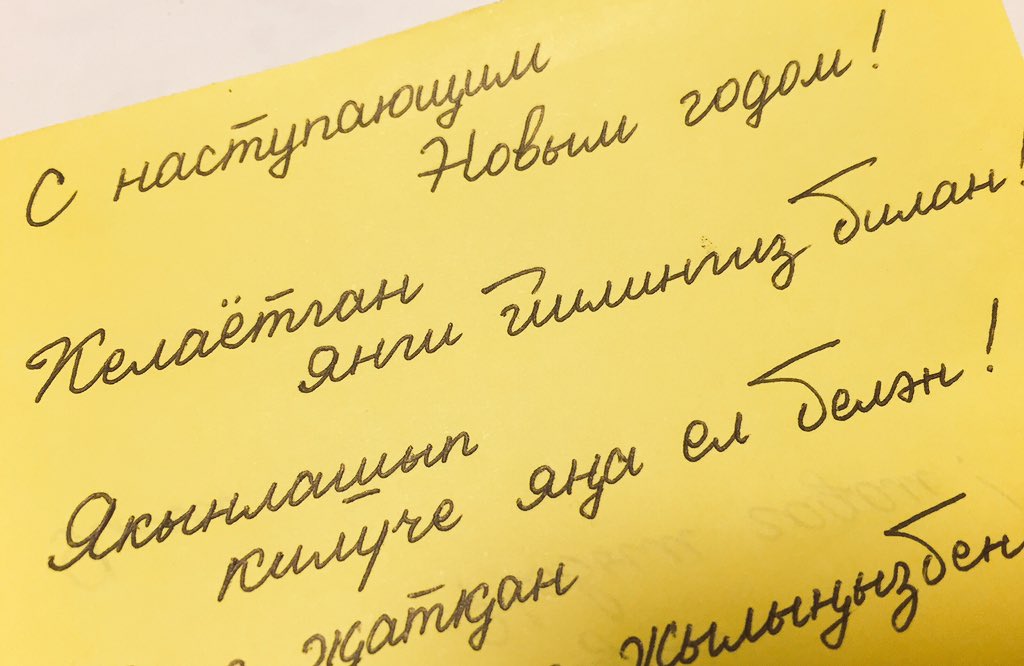 С наступающим
Новым годом!
Келаётган
янги йилингиз билан!
Якынлашып
килүче яңа ел белән!
жатқан
жылыңызбен